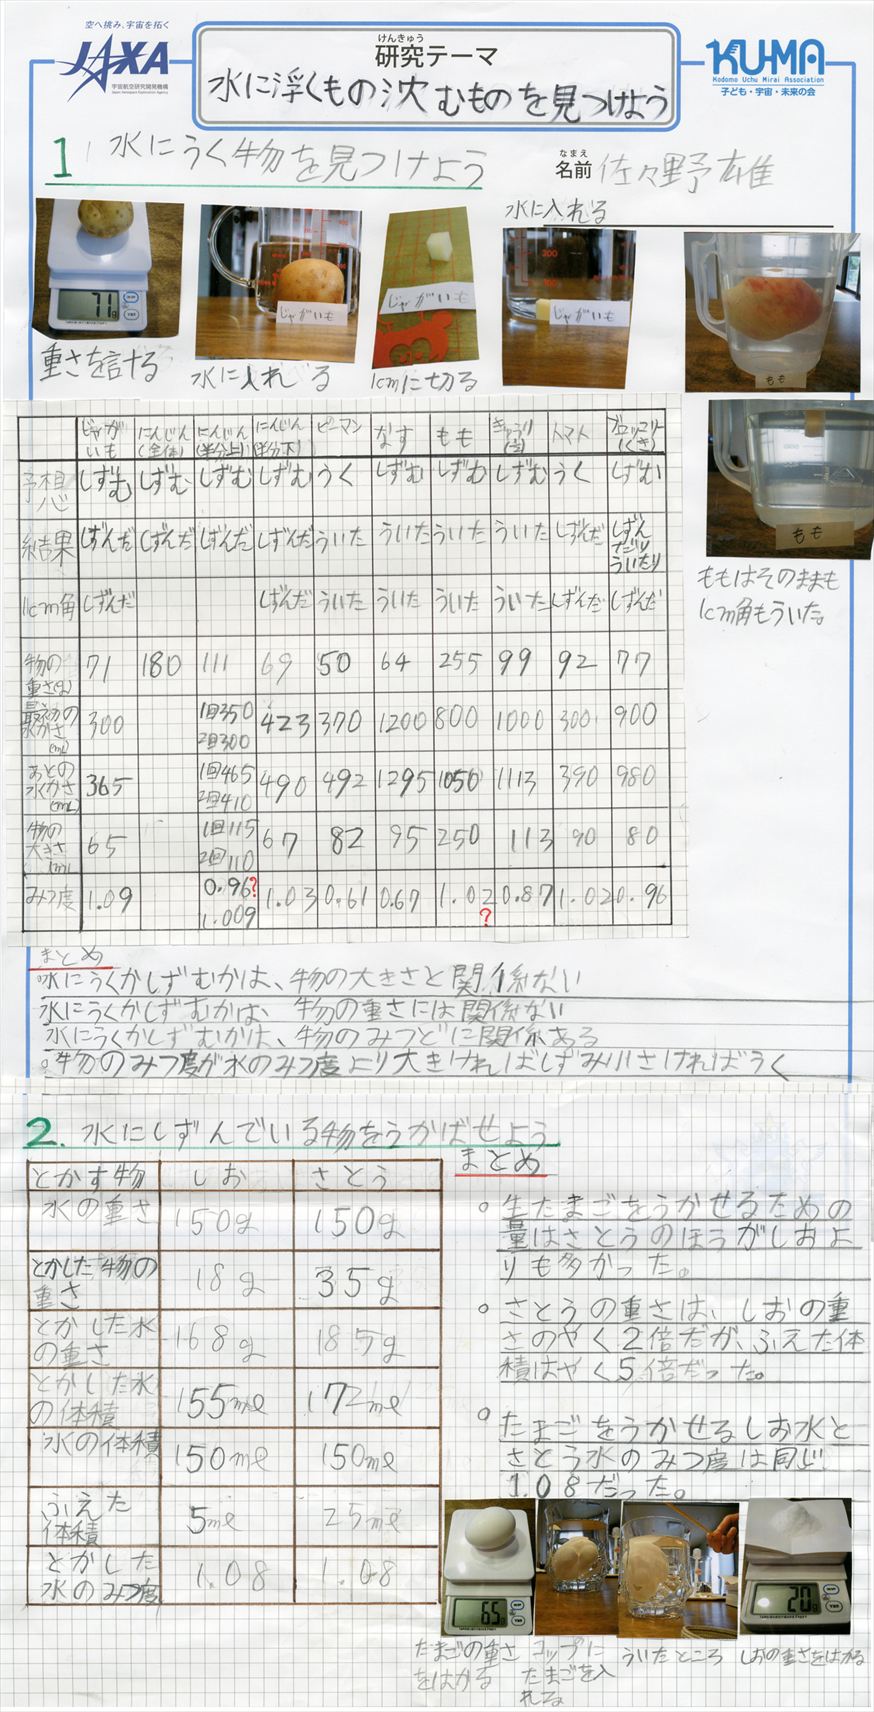 空へ挑み、宇宙を拓く
JAXA
宇宙航空研究開発機構
Japan Aerospace Exploration Agency
けんきゅう
研究テーマ
水に浮くもの沈むものを見つけよう
KU-MA
Kodomo Uchu Mirai Association
子ども・宇宙・未来の会
1 水にうく物を見つけよう
なまえ
名前 佐々野雄
水に入れる
71g
じゃがいも
じゃがいも
じゃがいも
もも
重さを計る
水に入れる
1cmに切る
もも
ももはそのままも
1cm角もういた。
じゃがいも にんじん(全体) にんじん(半分上) にんじん(半分下) ピーマン なす もも きゅうり トマト ブロッコリー(くき)
予想 しずむ しずむ しずむ しずむ うく しずむ しずむ しずむ うく しずむ
結果 しずんだ しずんだ しずんだ しずんだ ういた ういた ういた ういた しずんだ しずんだりういたり
1cm角 しずんだ しずんだ ういた ういた ういた ういた しずんだ しずんだ
物の重さ(g) 71 180 111 69 50 64 255 99 92 77
最初の水かさ(mL) 300 1回350 2回300 423 370 1200 800 1000 300 900
あとの水かさ(mL) 365 1回465 2回410 490 492 1295 1050 1113 390 980
物の大きさ(mL) 65 1回115 2回110 67 82 95 250 113 90 80
みつ度 1.09 0.96? 1.009 1.03 0.61 0.67 1.02? 0.87 1.02 0.96
まとめ
水にうくかしずむかは、物の大きさと関係ない
水にうくかしずむかは、物の重さには関係ない
水にうくかしずむかは、物のみつどに関係ある
物のみつ度が水のみつ度より大きければしずみ小さければうく
2. 水にしずんでいる物をうかばせよう
とかす物 しお さとう
水の重さ 150g 150g
とかした物の重さ 18g 35g
とかした水の重さ 168g 185g
とかした水の体積 155ml 172ml
水の体積 150ml 150ml
ふえた体積 5ml 25ml
とかした水のみつ度 1.08 1.08
まとめ
生たまごをうかせるための
量はさとうのほうがしおよ
りも多かった。
さとうの重さは、しおの重
さのやく2倍だが、ふえた体
積はやく5倍だった。
たまごをうかせるしお水と
さとう水のみつ度は同じ
1.08だった。
65g
20g
たまごの重さ
をはかる
コップに
たまごを入
れる
ういたところ
しおの重さをはかる